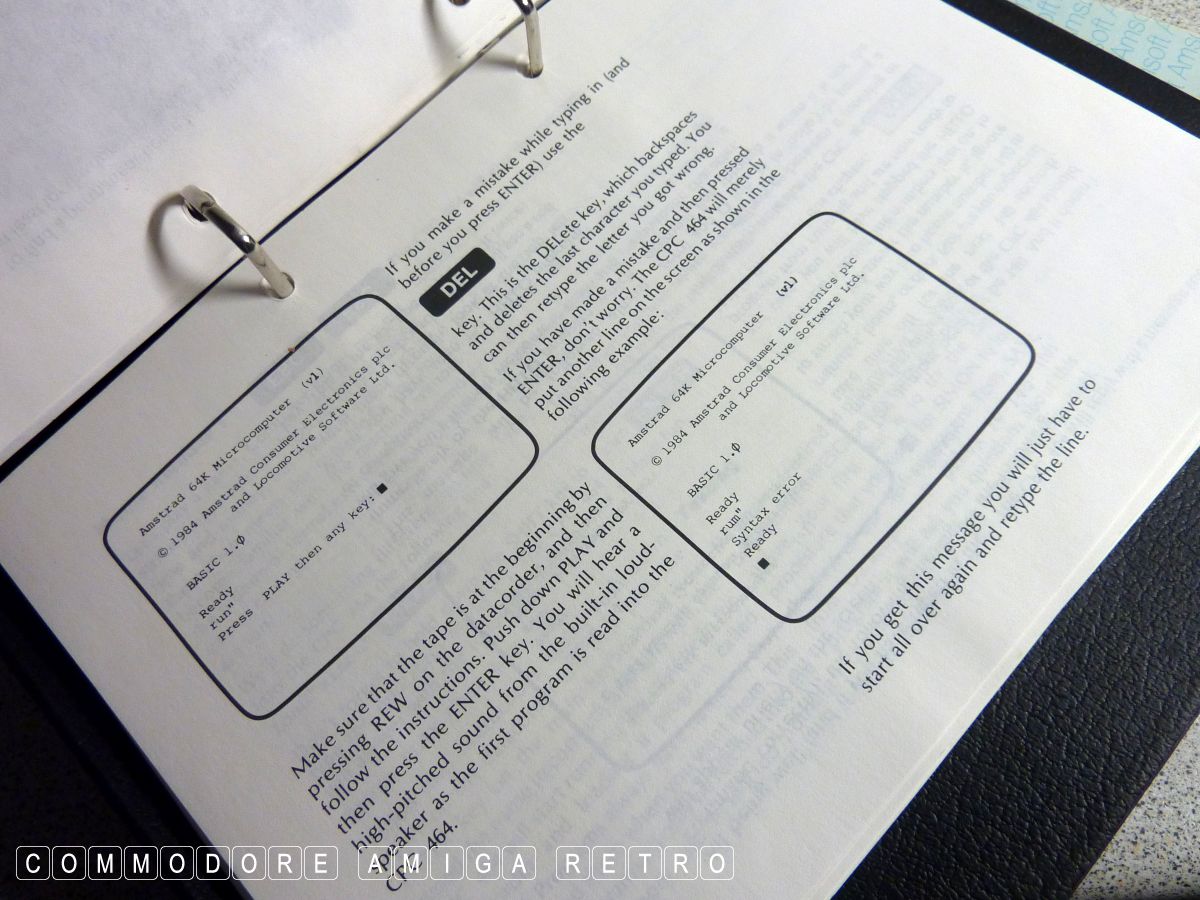 If you make a mistake while typing in (and
before you press ENTER) use the
DEL
key. This is the DELete key, which backspaces
and deletes the last character you typed. You
can then retype the letter you got wrong.
If you have made a mistake and then pressed
ENTER, don't worry. The CPC 464 will merely
put another line on the screen as shown in the
following example:
Amstrad 64K Microcomputer (v1)
© 1984 Amstrad Consumer Electronics plc
and Locomotive Software Ltd.
BASIC 1.0
Ready
run"
Press PLAY then any key:
Make sure that the tape is at the beginning by
pressing REW on the datacorder, and then
follow the instructions. Push down PLAY and
then press the ENTER key. You will hear a
high-pitched sound from the built-in loud-
speaker as the first program is read into the
CPC 464.
Amstrad 64K Microcomputer (v1)
© 1984 Amstrad Consumer Electronics plc
and Locomotive Software Ltd.
BASIC 1.0
Ready
rum"
Syntax error
Ready
If you get this message you will just have to
start all over again and retype the line.
COMMODORE AMIGA RETRO